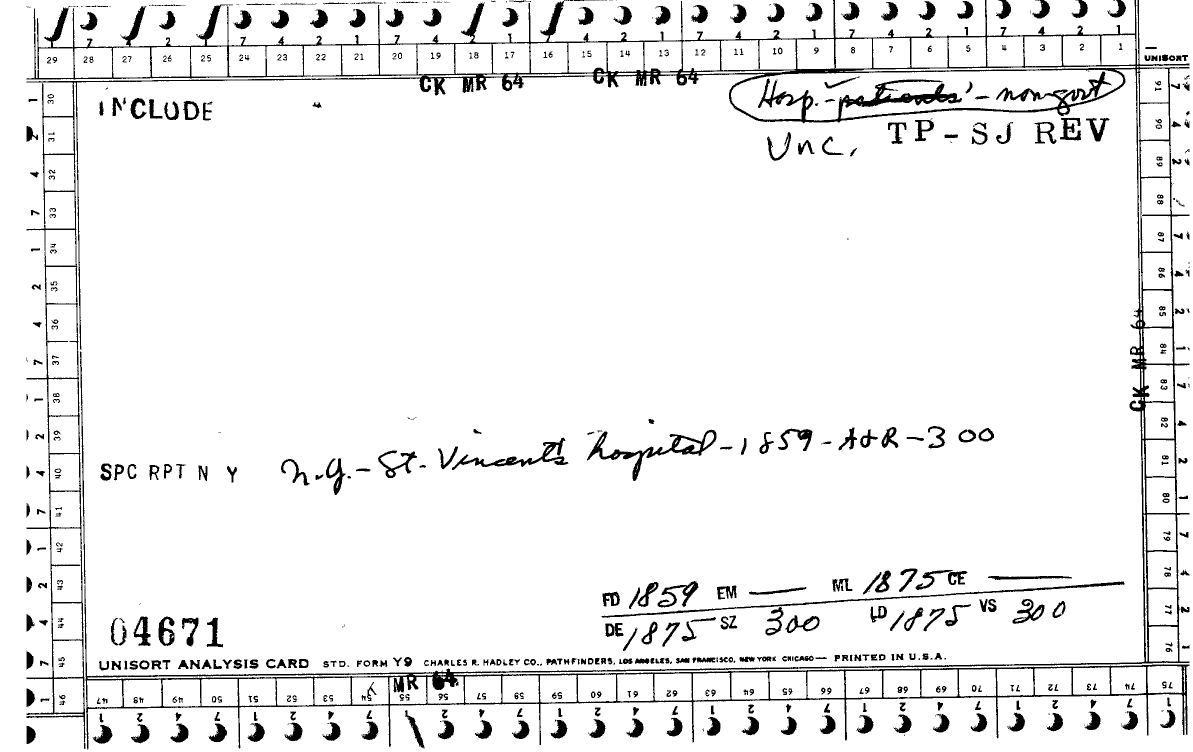 7 4 2 1 7 4 2 1 7 4 2 1 7 4 2 1 7 4 2 1
29 28 27 26 25 24 23 22 21 20 19 18 17 16 15 14 13 12 11 10 9 8 7 6 5 4 3 2 1
UNISORT
CK MR 64 CK MR 64
INCLUDE
Hosp.-patients'-nongovt
Unc. TP-SJ REV
30 31 32 33 34 35 36 37 38 39 40 41 42 43 44 45 46
1 2 4 7 1 2 4 7 1 2 4 7 1 2 4 7 1
91 90 89 88 87 86 85 84 83 82 81 80 79 78 77 76
CK MR 64
SPC RPT N Y N.Y.-St. Vincent's hospital-1859-A&R-300
FD 1859 EM — ML 1875 CE —
DE 1875 SZ 300 LD 1875 VS 300
04671
UNISORT ANALYSIS CARD STD. FORM Y9 CHARLES R. HADLEY CO., PATHFINDERS, LOS ANGELES, SAN FRANCISCO, NEW YORK CHICAGO— PRINTED IN U.S.A.
MR 64
47 48 49 50 51 52 53 54 55 56 57 58 59 60 61 62 63 64 65 66 67 68 69 70 71 72 73 74 75
1 2 4 7 1 2 4 7 2 4 7 1 2 4 7 1 2 4 7 1 2 4 7 1 2 4 7 1